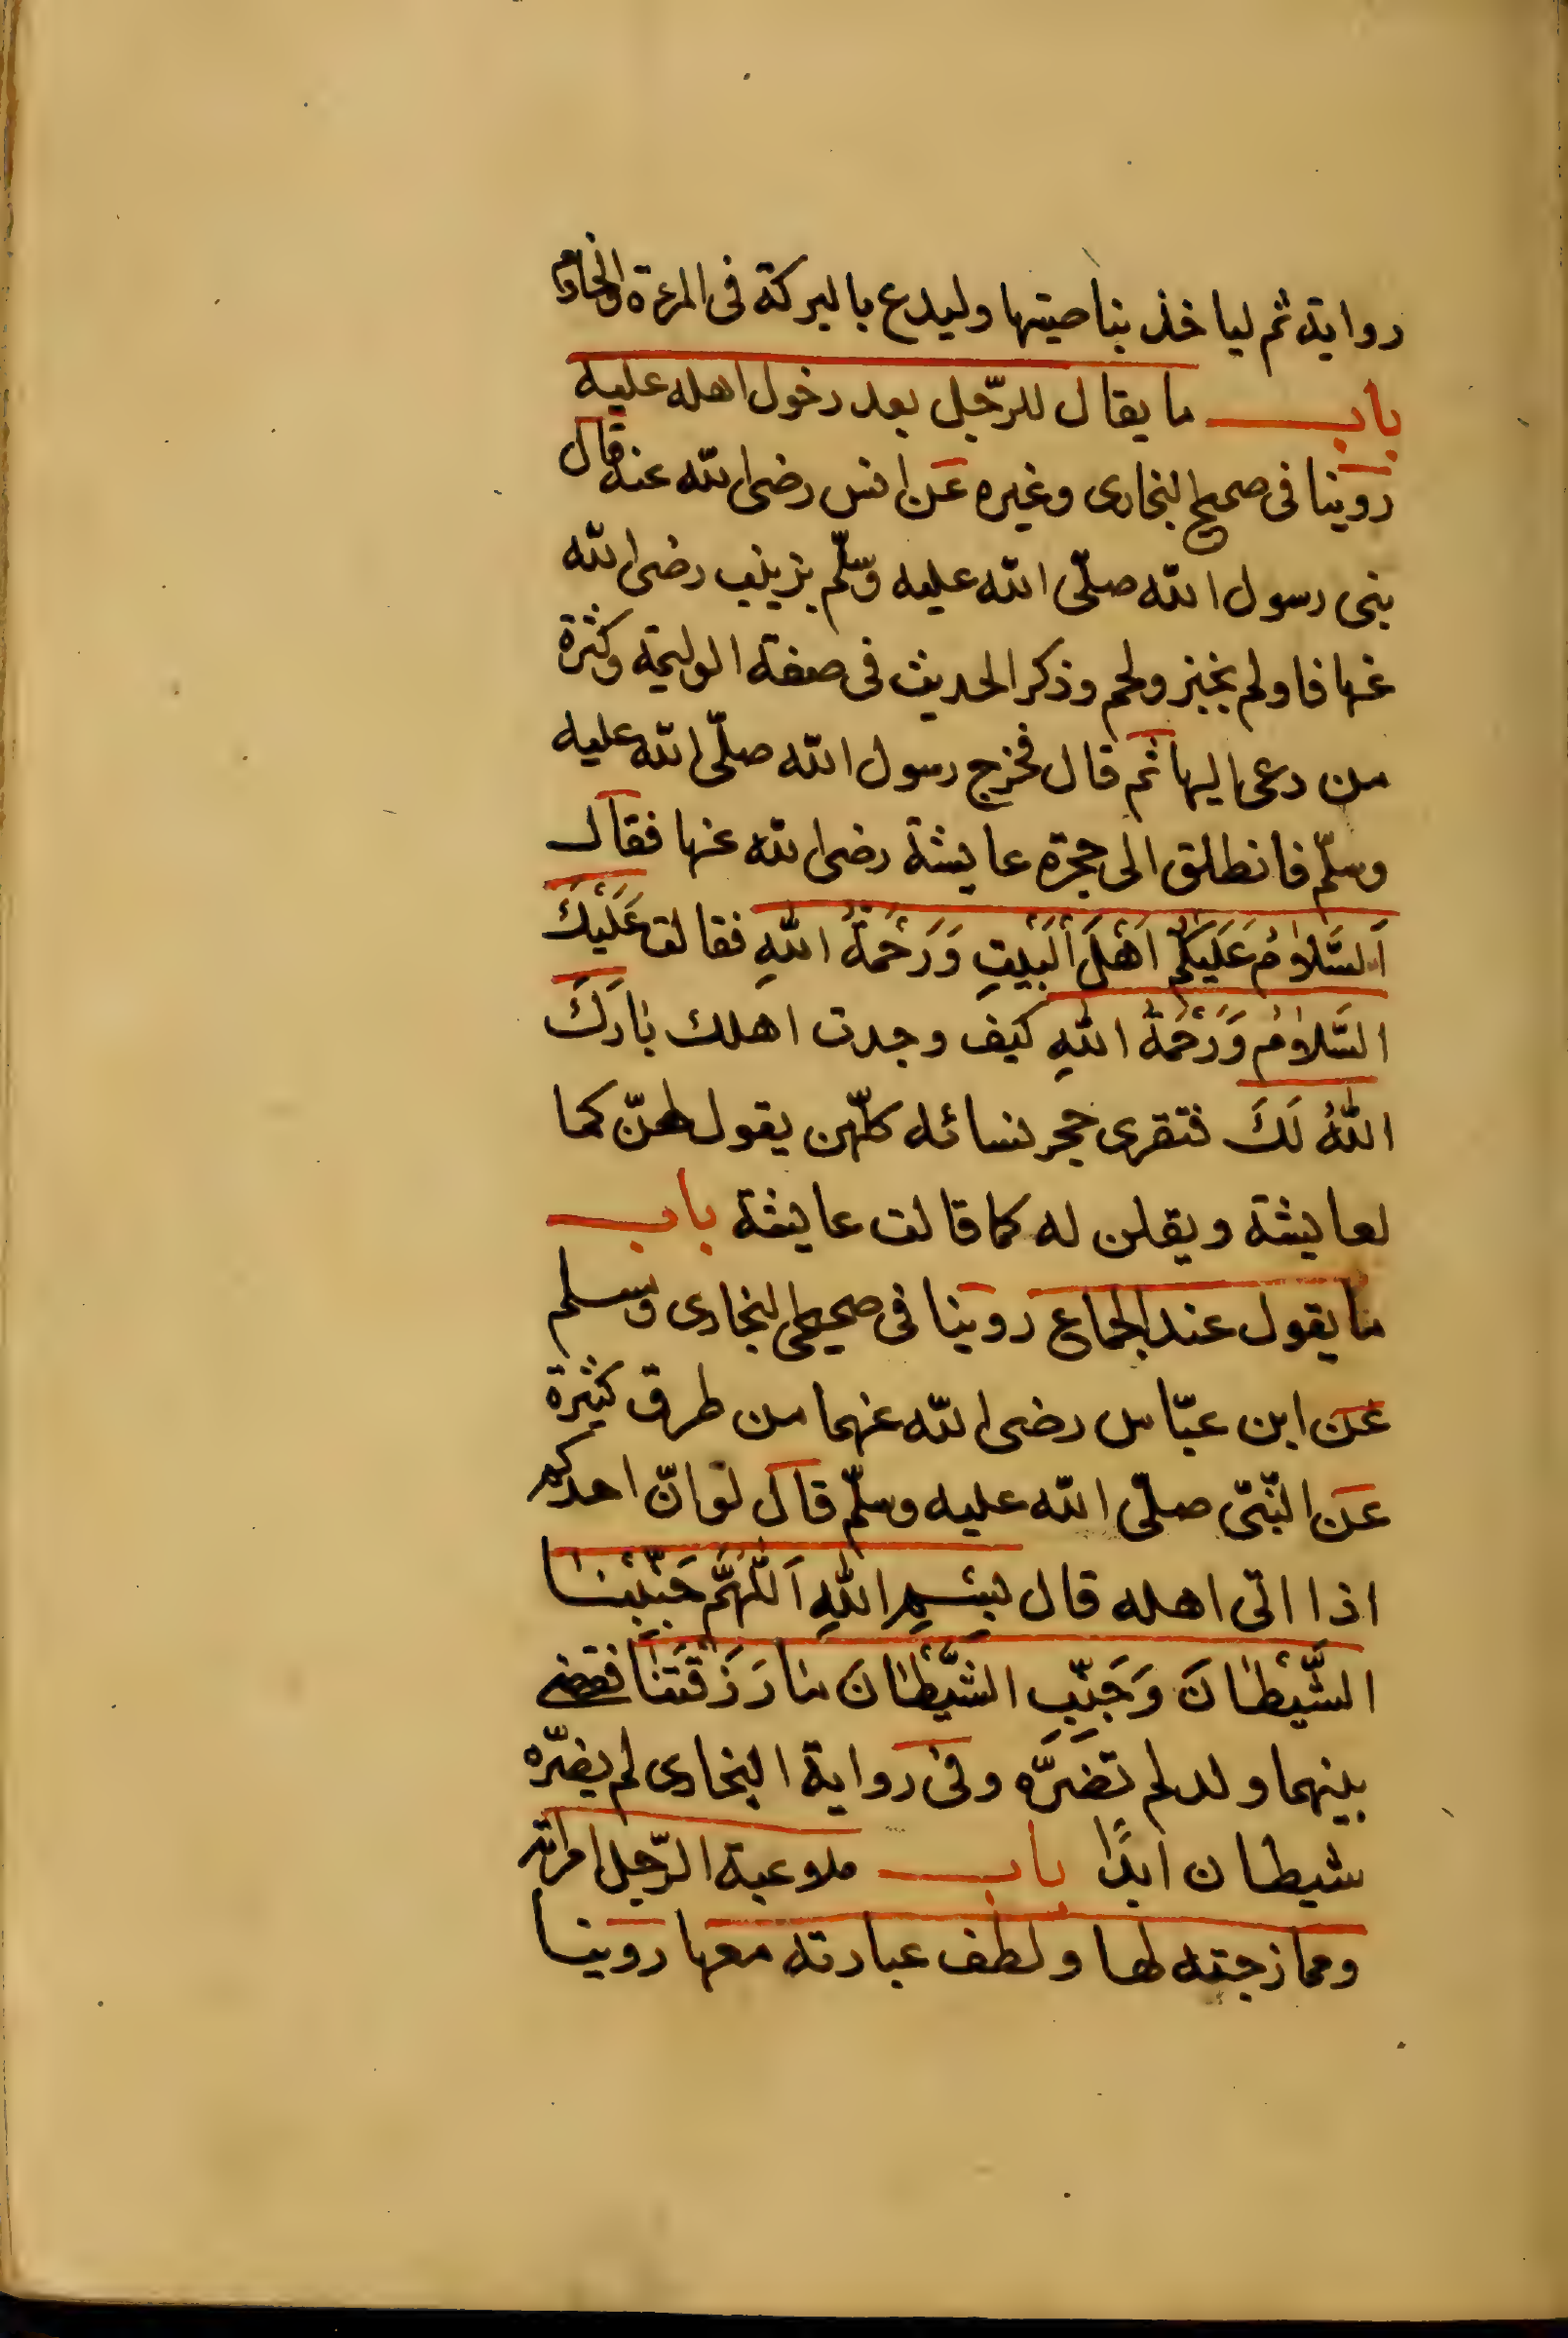 رواية ثم لياخذ بناصيتها وليدع بالبركة فى المرءة والخادم
باب ما يقال للرّجل بعد دخول اهله عليه
روينا فى صحيح البخارى وغيره عن انس رضى الله عنه قال
بنى رسول الله صلّى الله عليه وسلّم بزينب رضى الله
عنها فاولم بخبز ولحم وذكر الحديث فى صفة الوليمة وكثرة
من دعى اليها ثم قال فخرج رسول الله صلّى الله عليه
وسلّم فانطلق الى حجرة عايشة رضى الله عنها فقال
اَلسَّلامُ عَلَيْكُمْ اَهْلَ اْلبَيْتِ وَرَحْمَةُ اللهِ فقالت عَلَيْكَ
السَّلامُ وَرَحْمَةُ اللهِ كيف وجدت اهلك بَارَكَ
اللهُ لَكَ فتقرى حجر نسائه كلّهن يقول لهنّ كما
لعايشة ويقلن له كما قالت عايشة باب
ما يقول عند الجماع روينا فى صحيحى البخارى ومسلم
عن ابن عبّاس رضى الله عنهما من طرق كثيرة
عن النّبىّ صلّى الله عليه وسلّم قال لو انّ احدكم
اذا اتى اهله قال بِسْمِ اللهِ اَللّٰهُمَّ جَنِّبْنَا
الشَّيْطَانَ وَجَنِّبِ الشَّيْطَانَ مَا رَزَقْتَنَا فقضى
بينهما ولد لم تضَرَّه وفى رواية البخارى لم يضرّه
شيطان ابدًا باب ملاعبة الرّجل امراته
وممازجته لها ولطف عبارته معها روينا